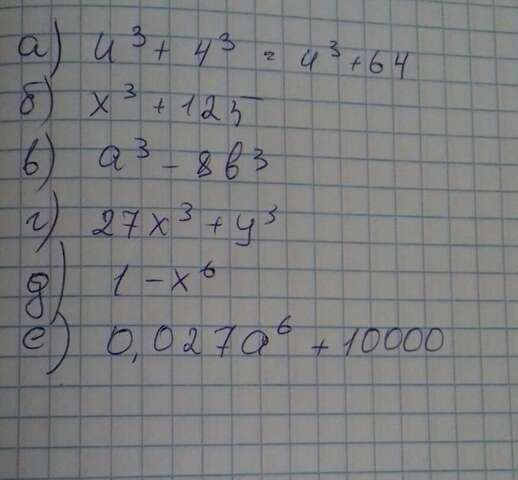 а) u³ + 4³ = u³ + 64
б) x³ + 125
в) a³ - 8b³
г) 27x³ + y³
д) 1 - x⁶
е) 0,027a⁶ + 10000